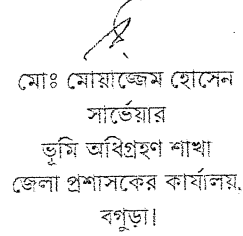 মোঃ মোয়াজ্জেম হোসেন
সার্ভেয়ার
ভূমি অধিগ্রহণ শাখা
জেলা প্রশাসকের কার্যালয়,
বগুড়া।